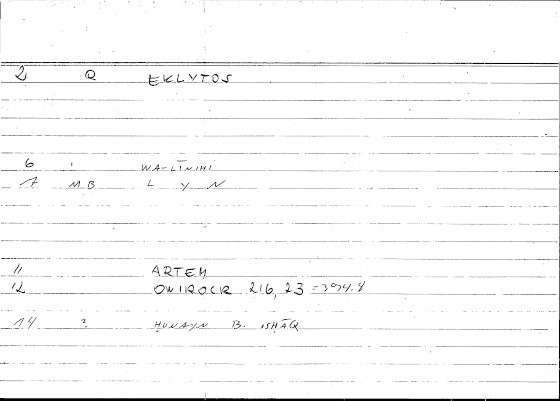 2 Q EKLYTOS
6 : WA-LĪNIHI
7 MB L Y N
11 ARTEM
12 ONIROCR 216, 23 = 394.8
14 ? ḤUNAYN B. ISḤĀQ